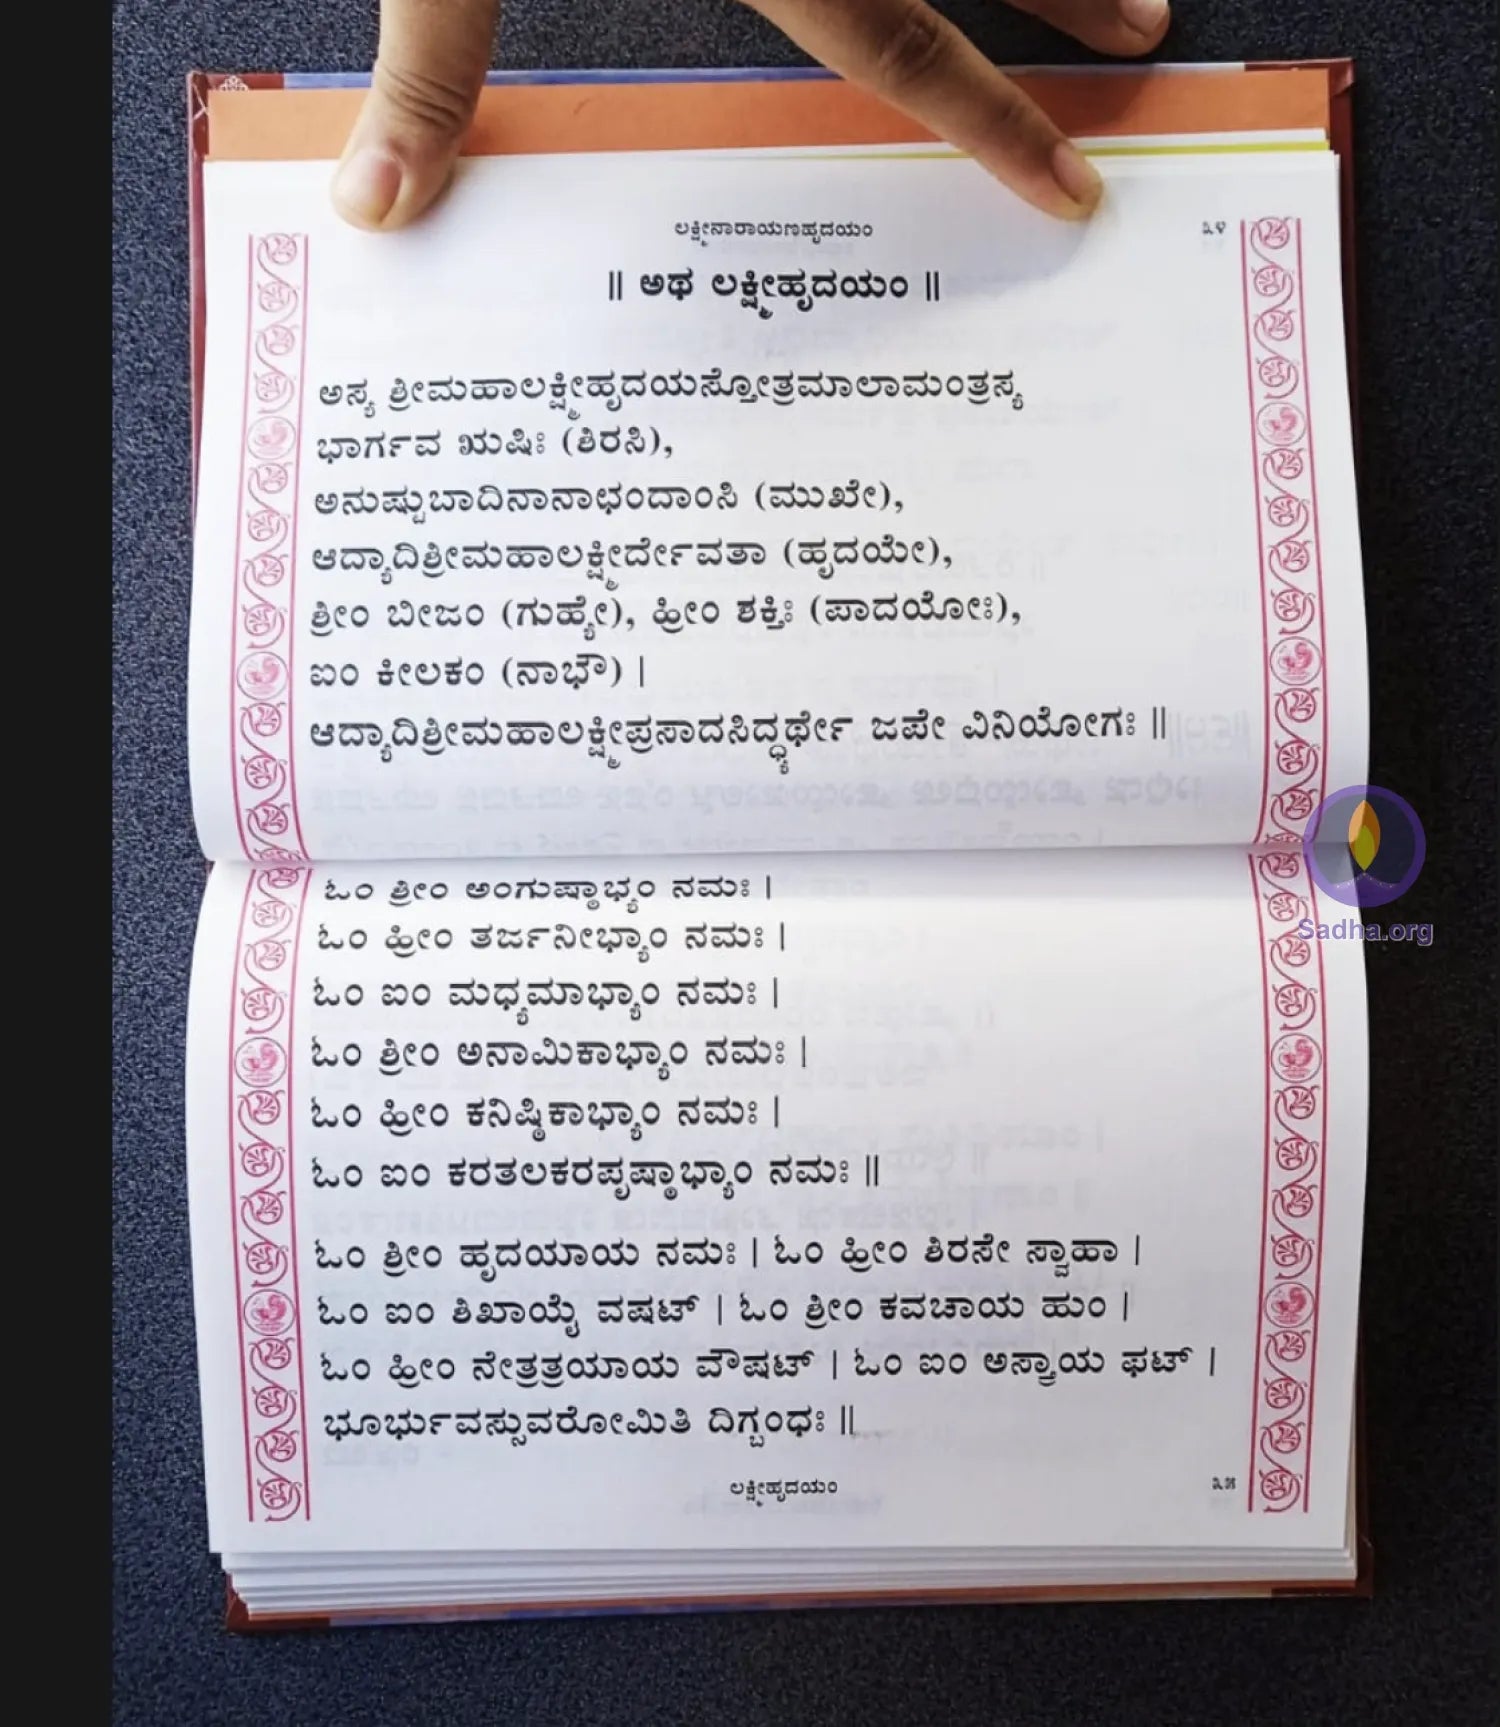 ಲಕ್ಷ್ಮೀನಾರಾಯಣಹೃದಯಂ ೩೪
॥ ಅಥ ಲಕ್ಷ್ಮೀಹೃದಯಂ ॥
ಅಸ್ಯ ಶ್ರೀಮಹಾಲಕ್ಷ್ಮೀಹೃದಯಸ್ತೋತ್ರಮಾಲಾಮಂತ್ರಸ್ಯ
ಭಾರ್ಗವ ಋಷಿಃ (ಶಿರಸಿ),
ಅನುಷ್ಟುಬಾದಿನಾನಾಛಂದಾಂಸಿ (ಮುಖೇ),
ಆದ್ಯಾದಿಶ್ರೀಮಹಾಲಕ್ಷ್ಮೀರ್ದೇವತಾ (ಹೃದಯೇ),
ಶ್ರೀಂ ಬೀಜಂ (ಗುಹ್ಯೇ), ಹ್ರೀಂ ಶಕ್ತಿಃ (ಪಾದಯೋಃ),
ಐಂ ಕೀಲಕಂ (ನಾಭೌ) ।
ಆದ್ಯಾದಿಶ್ರೀಮಹಾಲಕ್ಷ್ಮೀಪ್ರಸಾದಸಿದ್ಧ್ಯರ್ಥೇ ಜಪೇ ವಿನಿಯೋಗಃ ॥
ಓಂ ಶ್ರೀಂ ಅಂಗುಷ್ಠಾಭ್ಯಂ ನಮಃ ।
ಓಂ ಹ್ರೀಂ ತರ್ಜನೀಭ್ಯಾಂ ನಮಃ ।
ಓಂ ಐಂ ಮಧ್ಯಮಾಭ್ಯಾಂ ನಮಃ ।
ಓಂ ಶ್ರೀಂ ಅನಾಮಿಕಾಭ್ಯಾಂ ನಮಃ ।
ಓಂ ಹ್ರೀಂ ಕನಿಷ್ಠಿಕಾಭ್ಯಾಂ ನಮಃ ।
ಓಂ ಐಂ ಕರತಲಕರಪೃಷ್ಠಾಭ್ಯಾಂ ನಮಃ ॥
ಓಂ ಶ್ರೀಂ ಹೃದಯಾಯ ನಮಃ । ಓಂ ಹ್ರೀಂ ಶಿರಸೇ ಸ್ವಾಹಾ ।
ಓಂ ಐಂ ಶಿಖಾಯೈ ವಷಟ್ । ಓಂ ಶ್ರೀಂ ಕವಚಾಯ ಹುಂ ।
ಓಂ ಹ್ರೀಂ ನೇತ್ರತ್ರಯಾಯ ವೌಷಟ್ । ಓಂ ಐಂ ಅಸ್ತ್ರಾಯ ಫಟ್ ।
ಭೂರ್ಭುವಸ್ಸುವರೋಮಿತಿ ದಿಗ್ಬಂಧಃ ॥
ಲಕ್ಷ್ಮೀಹೃದಯಂ ೩೫
Sadha.org